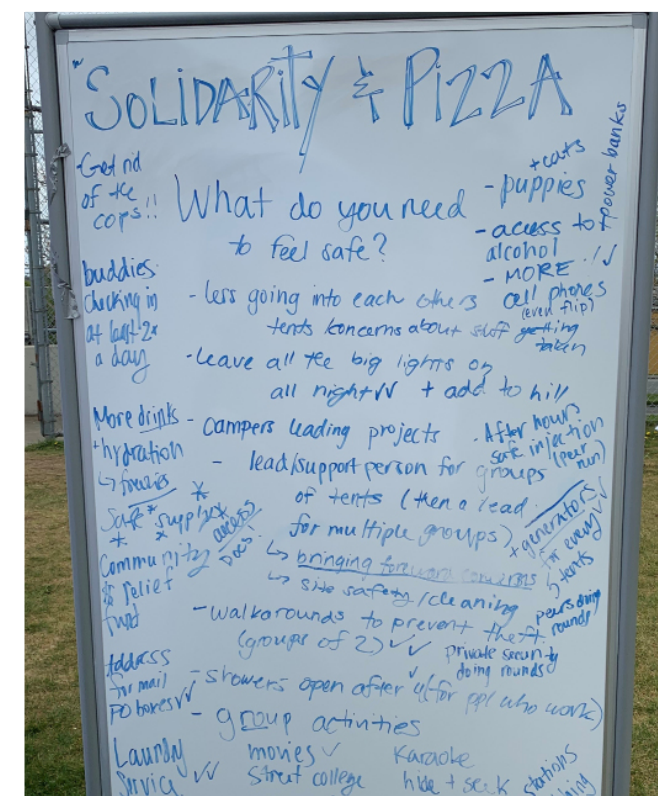 "SOLiDARity & PiZZA
-Get rid
of the
cops!!
buddies
checking in
at least 2x
a day
More drinks
+hydration
↳ freezies
Safe * supply *
access
Community
$ relief
fund
Address
for mail
PO boxes ✓✓
Laundry
Service ✓✓
What do you need
to feel safe?
- less going into each others
tents concerns about stuff getting
taken
- leave all the big lights on
all night ✓✓ + add to hill
- campers leading projects
- lead/support person for groups
of tents (then a lead
for multiple groups)
↳ bringing forward concerns
↳ site safety/cleaning
- walkarounds to prevent theft
(groups of 2) ✓✓
peers doing
rounds
private security
doing rounds
- showers open after 4 (for ppl who work)
- group activities
movies ✓
Karaoke
Street college
hide + seek
+ cats
- puppies
+power banks
- acess to
alcohol
- MORE ! ✓
cell phones
(even flip)
- After hours
safe injection
(peer
run)
+ generators
for every ✓✓
5 tents
stations